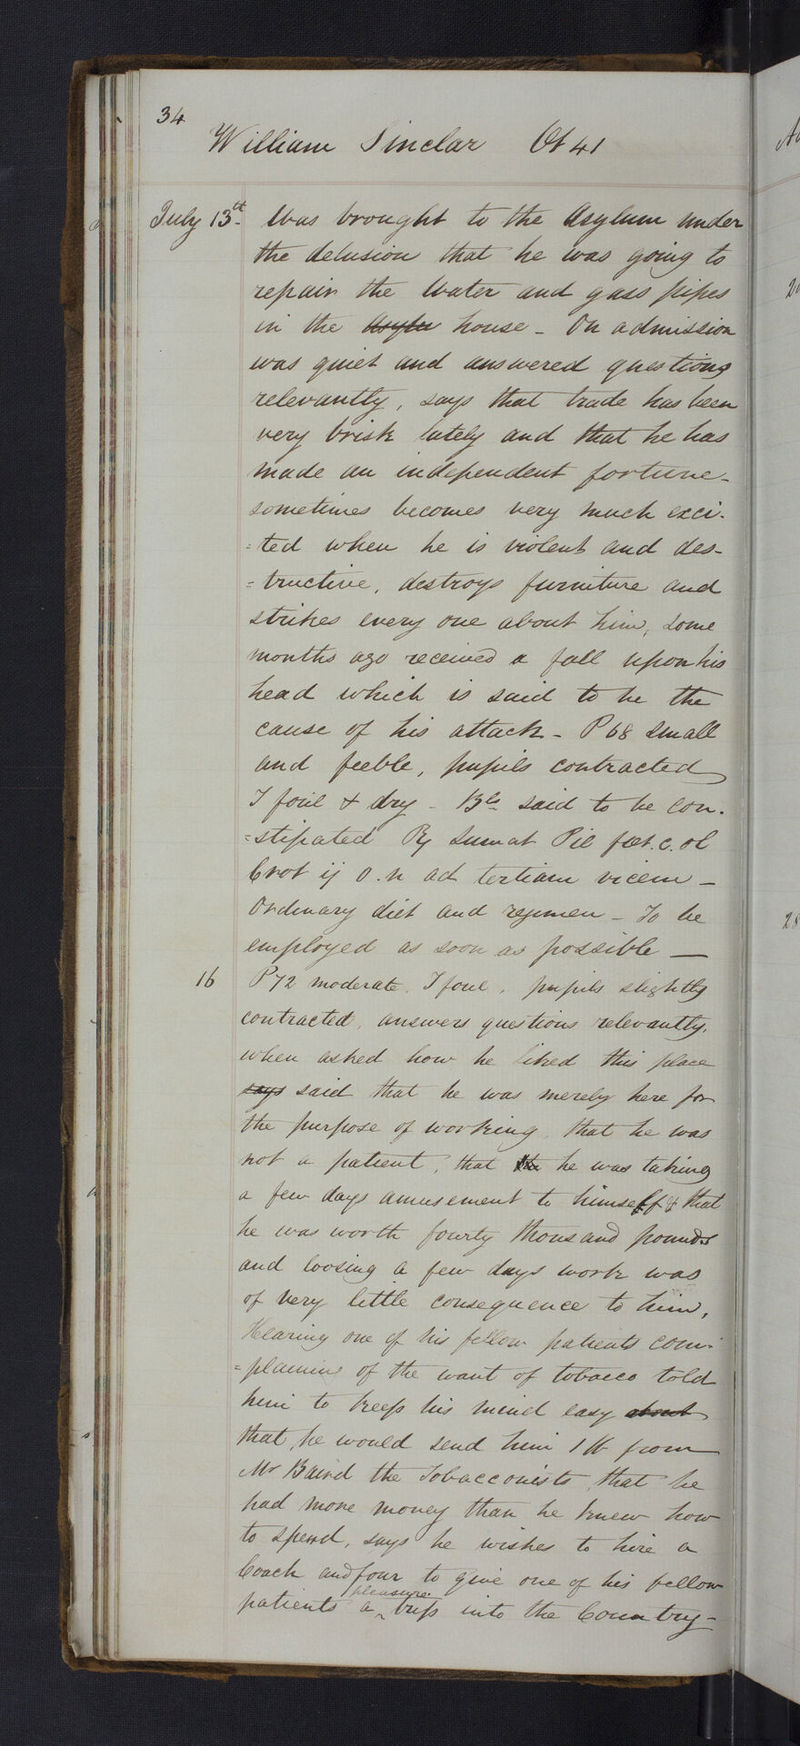 34
William Sinclar Æt 41
July 13th Was brought to the Asylum under
the delusion that he was going to
repair the Water and gass pipes
in the Asylu house - On admission
was quiet and answered questions
relevantly, says that trade has been
very brisk lately and that he has
made an independent fortune -
sometimes becomes very much exci-
=ted when he is violent and des-
=tructive, destroys furniture and
strikes every one about him, some
months ago received a fall upon his
head which is said to be the
cause of his attack - P 68 small
and feeble, pupils contracted
T foul & dry - Bls said to be con-
=stipated Rx Sumat Pil foet. c. ol
Crot ij o. n ad tertiam vicem -
Ordinary diet and regimen - To be
employed as soon as possible —
16 P 72 moderate. T foul, pupils slightly
contracted, answers questions relevantly,
when asked how he liked this place
says said that he was merely here for
the purpose of working, that he was
not a patient, that he was taking
a few days amusement to himself & that
he was worth fourty thousand pounds
and loosing a few days work was
of very little consequence to him,
Hearing one of his fellow patients com-
=plaining of the want of tobacco told
him to keep his mind easy about
that, he would send him 1 lb from
Mr Baird the Tobacconists, that he
had more money than he knew how
to spend, says he wishes to hire a
Coach and four to give one of his fellow
patients a pleasure trip into the Country -